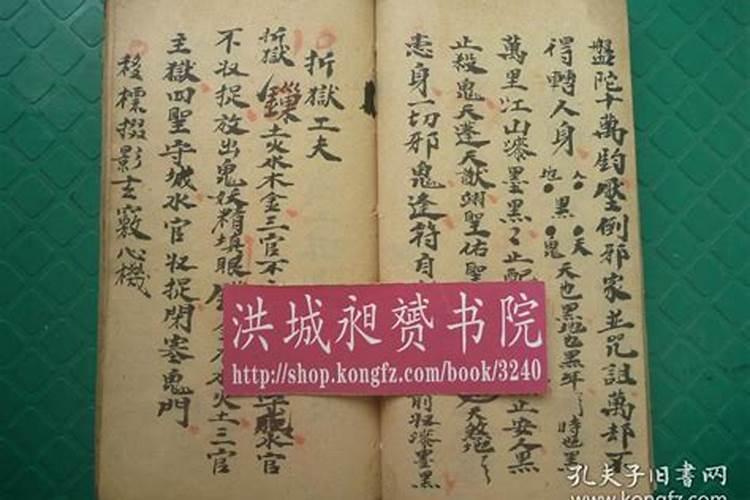 盤陀十萬鈞壓倒邪家並咒詛萬却不
得轉人身
人 黑 天
地 鬼
天也黑地也黑年 時也黑
萬里江山漆墨黑〻止
正安人黑
止殺鬼天蓬天猷翊聖佑聖
天煞地
患身一切邪鬼逢符自
前收漆墨黑
折獄工夫
折獄 土火水木金三官不
水官
不收捉放出鬼妖精填眼
水火土三官
主獄四聖守城水官收捉閉塞鬼門
移標掇影玄竅心機
洪城昶赟书院
http://shop.kongfz.com/book/3240
孔夫子旧书网
www.kongfz.com